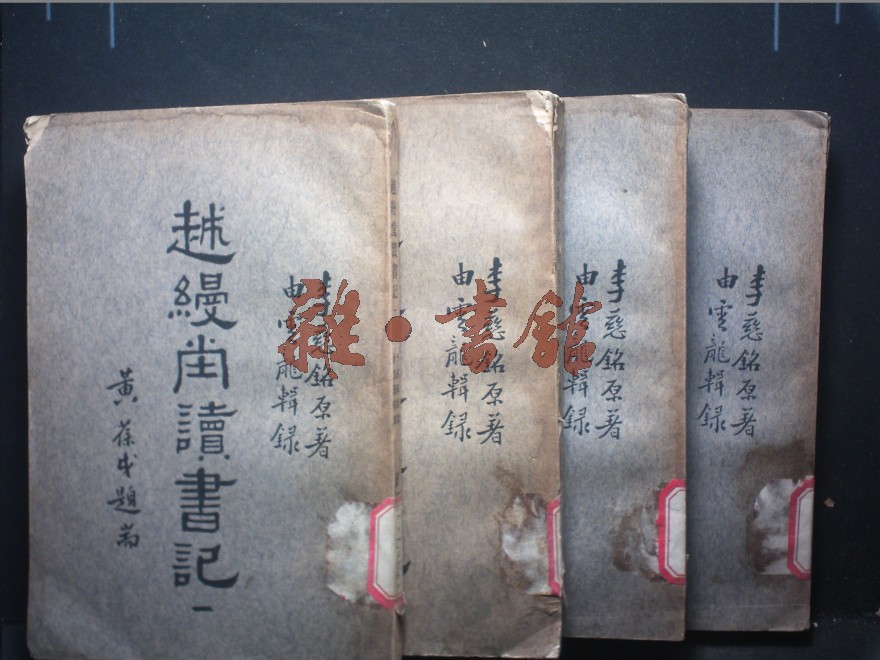 李慈銘原著
由雲龍輯録
越縵坣讀書記 一
黃葆戉題耑
李慈銘原著
由雲龍輯録
李慈銘原著
由雲龍輯録
李慈銘原著
由雲龍輯録
雜·書館